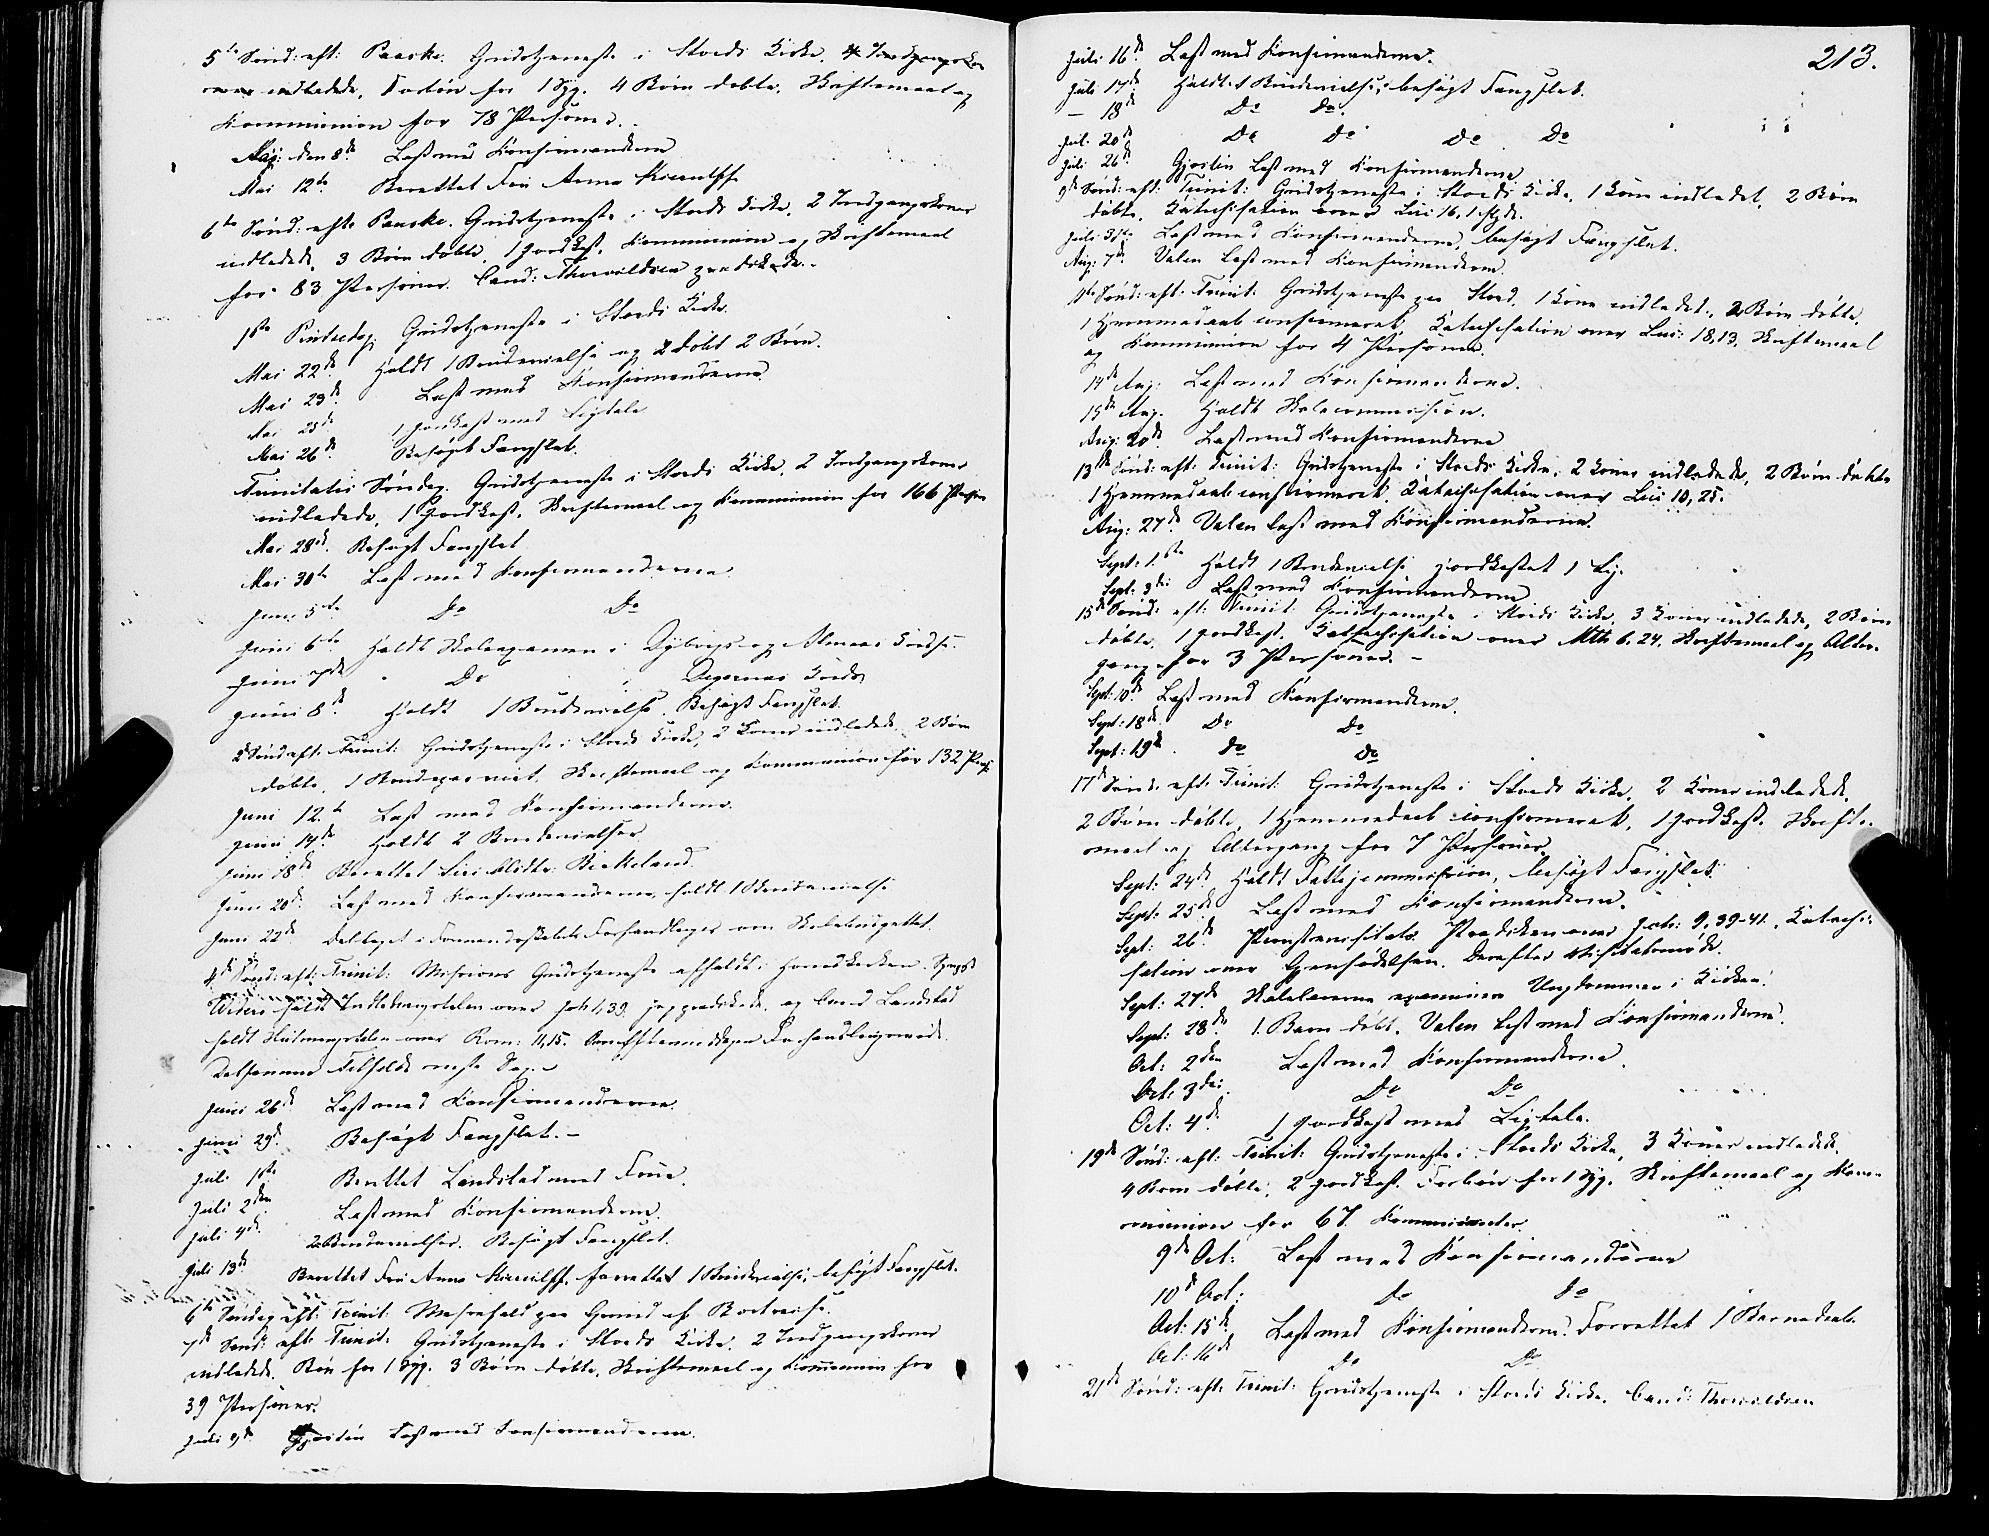 5te Sønd: eft: Paaske. Gudstjeneste i Stords Kirke. 4 Indgangsko
ner indledede, Forbøn for 1 Syg. 4 Børn døbte. Skriftemaal og
Kommunion for 78 Personer.
Maj: den 8de Læst med Konfirmanderne
Mai 12te Berettet Fru Anna
6te Sønd: efter Paaske. Gudstjeneste i Stords Kirke, 2 Indgangskoner
indledede, 3 Børn døbte, 1 jordkast. Kommunion og Skriftemaal
for 83 Personer. Cand: Thorvaldsen prædikede.
1ste Pintsedag. Gudstjeneste i Stords Kirke.
Mai 22de Holdt 1 Brudevielse og døbt 2 Børn.
Mai 23de Læst med Konfirmanderne.
Mai 25de 1 jordkast med Ligtale
Mai 26de Besøgt Fængslet.
Trinitatis Søndag. Gudstjeneste i Stords Kirke, 2 Indgangskoner
indledede, 1 jordkast. Skriftemaal og Kommunion for 166 Person
Mai 28de. Besøgt Fængslet
Mai 30te Læst med Konfirmanderne
Juni 5te Do Do
Juni 6te Holdt Skoleexamen i og Almaas Kreds.
Juni 7de Do Digernæs Kreds
Juni 8de Holdt 1 Brudevielse. Besøgt Fængslet.
2 Sønd: eft: Trinit: Gudstjeneste i Stords Kirke, 2 Koner indledede, 2 Børn
døbte, 1 Brudepar viet, Skriftemaal og Kommunion for 132 Pers
Juni 12te Læst med Konfirmanderne.
Juni 14de Holdt 2 Brudevielser
Juni 18de Berettet Birkeland.
Juni 20de. Læst med Konfirmanderne, holdt 1 Brudevielse
Juni 22de Deltaget i Formandskabets Forhandlinger om Skolebudgettet.
4de Sønd: eft: Trinit: Missions Gudstjeneste afholdt i Hovedkirken.
holdt Indledningstalen over Joh 1,39, jeg prædikede, og Cand Landstad
holdt Slutningstalen over Rom: 11,15. Om Eftermiddagen Forhandlingsmøde.
Detsamme næste Dag.
Juni 26de Læst med Konfirmanderne.
Juni 29de. Besøgt Fængslet.
Juli 1ste Berettet Landstad med Frue.
Juli 2den Læst med Konfirmanderne.
Juli 4de. 2 Brudevielser. Besøgt Fængslet.
Juli 13de. Berettet Fru Anna forrettet 1 Brudevielse, besøgt Fængslet.
6te Søndag eft: Trinit: Messefald paa Grund af Bortreise.
7de Sønd: efter Trinit: Gudstjeneste i Stords Kirke. 2 Indgangskoner
indledede. Bøn for 1 Syg. 3 Børn døbte, Skriftemaal og Kommunion for
39 Personer.
Juli 9de Læst med Konfirmanderne.
213.
Juli 16de Læst med Konfirmanderne.
Juli 17de Holdt 1 Brudevielse, besøgt Fængslet.
— 18de Do Do.
Juli 20de Do Do Do Do
Juli 26de Læst med Konfirmanderne
9de Sønd: eft: Trinit: Gudstjeneste i Stords Kirke, 1 Kone indledet, 2 Børn
døbte, Katechisation over Luc 16, 1 flgde.
Juli 31te Læst med Konfirmanderne, besøgt Fængslet.
Aug: 7de Valen Læst med Konfirmanderne.
Sønd: eft: Trinit. Gudstjeneste paa Stord, 1 Kone indledet, 2 Børn døbte,
1 Hjemmedaab confirmeret, Katechisation over Luc: 18,13, Skriftemaal
og Kommunion for 4 Personer.
14de Aug: Læst med Konfirmanderne.
15de Aug. Holdt Skolecommission.
Aug: 20de. Læst med Konfirmanderne
13de Sønd: eft: Trinit: Gudstjeneste i Stords Kirke, 2 Koner indledede, 2 Børn døbte
1 Hjemmedaab confirmeret. Katechisation over Luc 10, 25.
Aug: 27de Valen læst med Konfirmanderne.
Sept: 1ste Holdt 1 Brudevielse jordkastet 1 Lig.
Sept: 3die Læst med Konfirmanderne
15de Sønd: eft: Trinit: Gudstjeneste i Stords Kirke, 3 Koner indledede, 2 Børn
døbte, 1 jordkast. Katechisation over Mth 6.24. Skriftemaal og Alter-
gang for 3 Personer. -
Sept: 10de Læst med Konfirmanderne.
Sept: 18de. Do Do
Sept: 19de. Do Do
17de Sønd: eft: Trinit: Gudstjeneste i Stords Kirke. 2 Koner indledede,
2 Børn døbte, 1 Hjemmedaab confirmeret, 1 jordkast. Skrifte-
maal og Altergang for 7 Personer.
Sept: 24de Holdt Fattigcommission, besøgt Fængslet.
Sept: 25de Læst med Konfirmanderne.
Sept: 26de Provstevisitats. Prædiken over Joh: 9, 39-41. Katechi-
sation over Gjenfødelsen. Derefter Visitatsmøde.
Sept: 27de Skolelærerne examinere Ungdommen i Kirken.
Sept: 28de 1. Barn døbt. Valen læst med Konfirmanderne.
Oct: 2den Læst med Konfirmanderne.
Oct: 3die Do Do
Oct: 4de 1 jordkast med Ligtale.
19de Sønd: eft: Trinit: Gudstjeneste i Stords Kirke, 3 Koner indledede,
4 Børn døbte, 2 jordkast. Forbøn for 1 Syg. Skriftemaal og Kom-
munion for 67. Kommunicanter.
9de Oct: Læst med Konfirmanderne
10de Oct: Do Do
Oct: 15de Læst med Konfirmanderne. Forrettet 1 Barnedaab.
Oct: 16de Do Do
21de Sønd: eft: Trinit: Gudstjeneste i Stords Kirke. Cand: Thorvaldsen